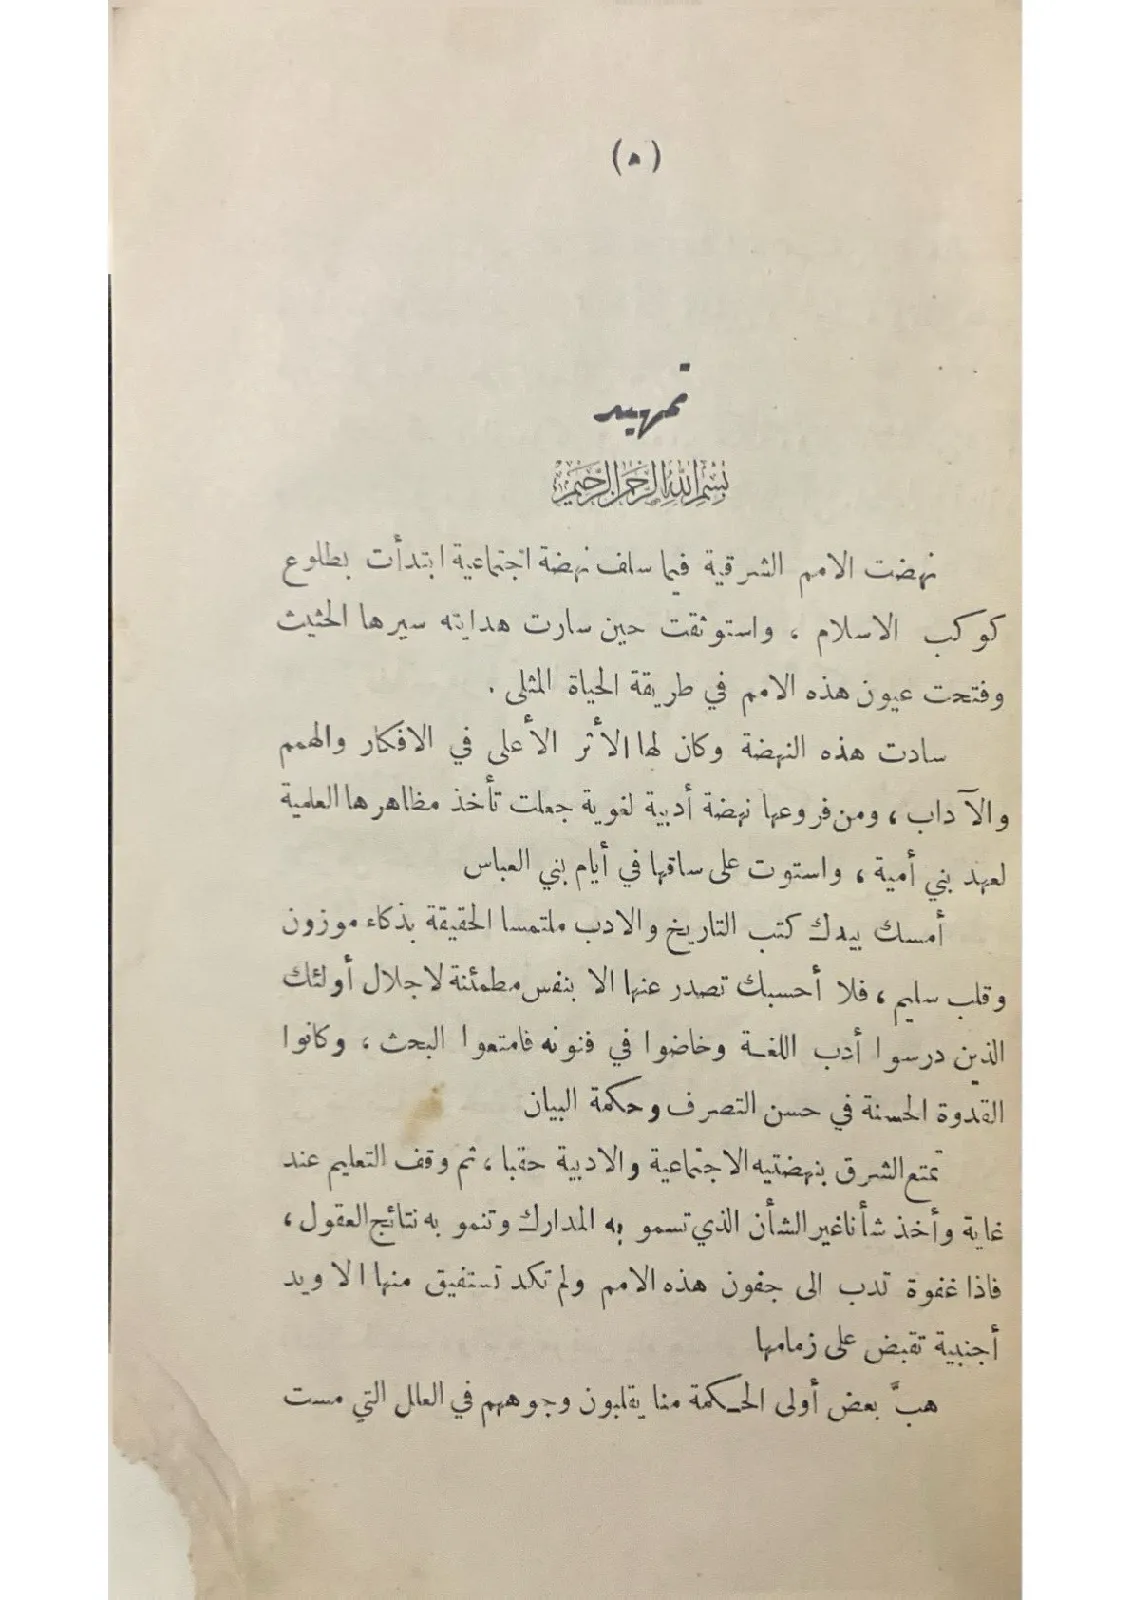 (٥)
تمهيد
بسم الله الرحمن الرحيم
نهضت الامم الشرقية فيما سلف نهضة اجتماعية ابتدأت بطلوع
كوكب الاسلام ، واستوثقت حين سارت هدايته سيرها الحثيث
وفتحت عيون هذه الامم في طريقة الحياة المثلى .
سادت هذه النهضة وكان لها الأثر الأعلى في الافكار والهمم
والآداب ، ومن فروعها نهضة أدبية لغوية جعلت تأخذ مظاهرها العلمية
لعهد بني أمية ، واستوت على ساقها في أيام بني العباس
أمسك بيدك كتب التاريخ والادب ملتمسا الحقيقة بذكاء موزون
وقلب سليم ، فلا أحسبك تصدر عنها الا بنفس مطمئنة لاجلال أولئك
الذين درسوا أدب اللغة وخاضوا في فنونه فامتعوا البحث ، وكانوا
القدوة الحسنة في حسن التصرف وحكمة البيان
تمتع الشرق بنهضتيه الاجتماعية والادبية حقبا ، ثم وقف التعليم عند
غاية وأخذ شأنا غير الشأن الذي تسمو به المدارك وتنمو به نتائج العقول ،
فاذا غفوة تدب الى جفون هذه الامم ولم تكد تستفيق منها الا ويد
أجنبية تقبض على زمامها
هبَّ بعض أولى الحكمة منا يقلبون وجوههم في العلل التي مست